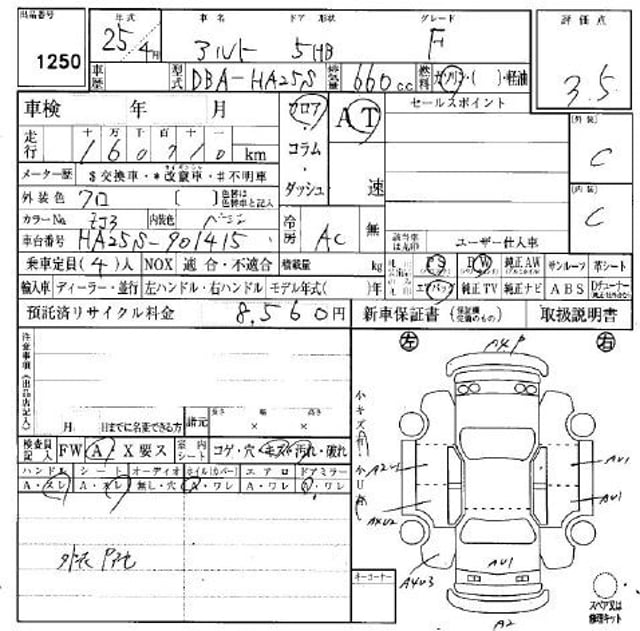 出品番号 1250
年式 25/4月
車名 アルト
ドア 形状 5HB
グレード F
評価点 3.5
車歴
型式 DBA-HA25S
排気量 660cc
燃料 ガソリン・( )・軽油
車検 年 月
フロア・コラム・ダッシュ
AT 速
セールスポイント
(外装) C
(内装) C
走行 十 万 千 百 十 一
160710 km
メーター歴 $交換車・*改竄車・#不明車
外装色 クロ ( ) 色替は色替車と記入
カラーNo. ZJ3 内装色 ベージュ
車台番号 HA25S-901415
冷房 AC 無
該当車は丸印 ユーザー仕入車
乗車定員(4)人 NOX 適合・不適合 積載量 kg
PS PW 純正AW サンルーフ 革シート
エアバッグ 純正TV 純正ナビ ABS Dチューナー
輸入車 ディーラー・並行 左ハンドル・右ハンドル モデル年式( )年
預託済リサイクル料金 8,560円
新車保証書(保証継承可能のもの) 取扱説明書
注意事項(出品店記入)
月 日までに名変できる方
諸元 長さ × 幅 × 高さ
左 右
検査員記入 FW A X要ス 室内シート コゲ・穴・キズ・汚れ・破れ
ハンドル シート オーディオ ホイル(カバー) エアロ ドアミラー
A・スレ A・スレ 無し・穴 A・ワレ A・ワレ A・ワレ
A4P
A2U1
AU1
AXU2
AU1
A4U3
AU1
A2
コーナー
スペア又は修理キット